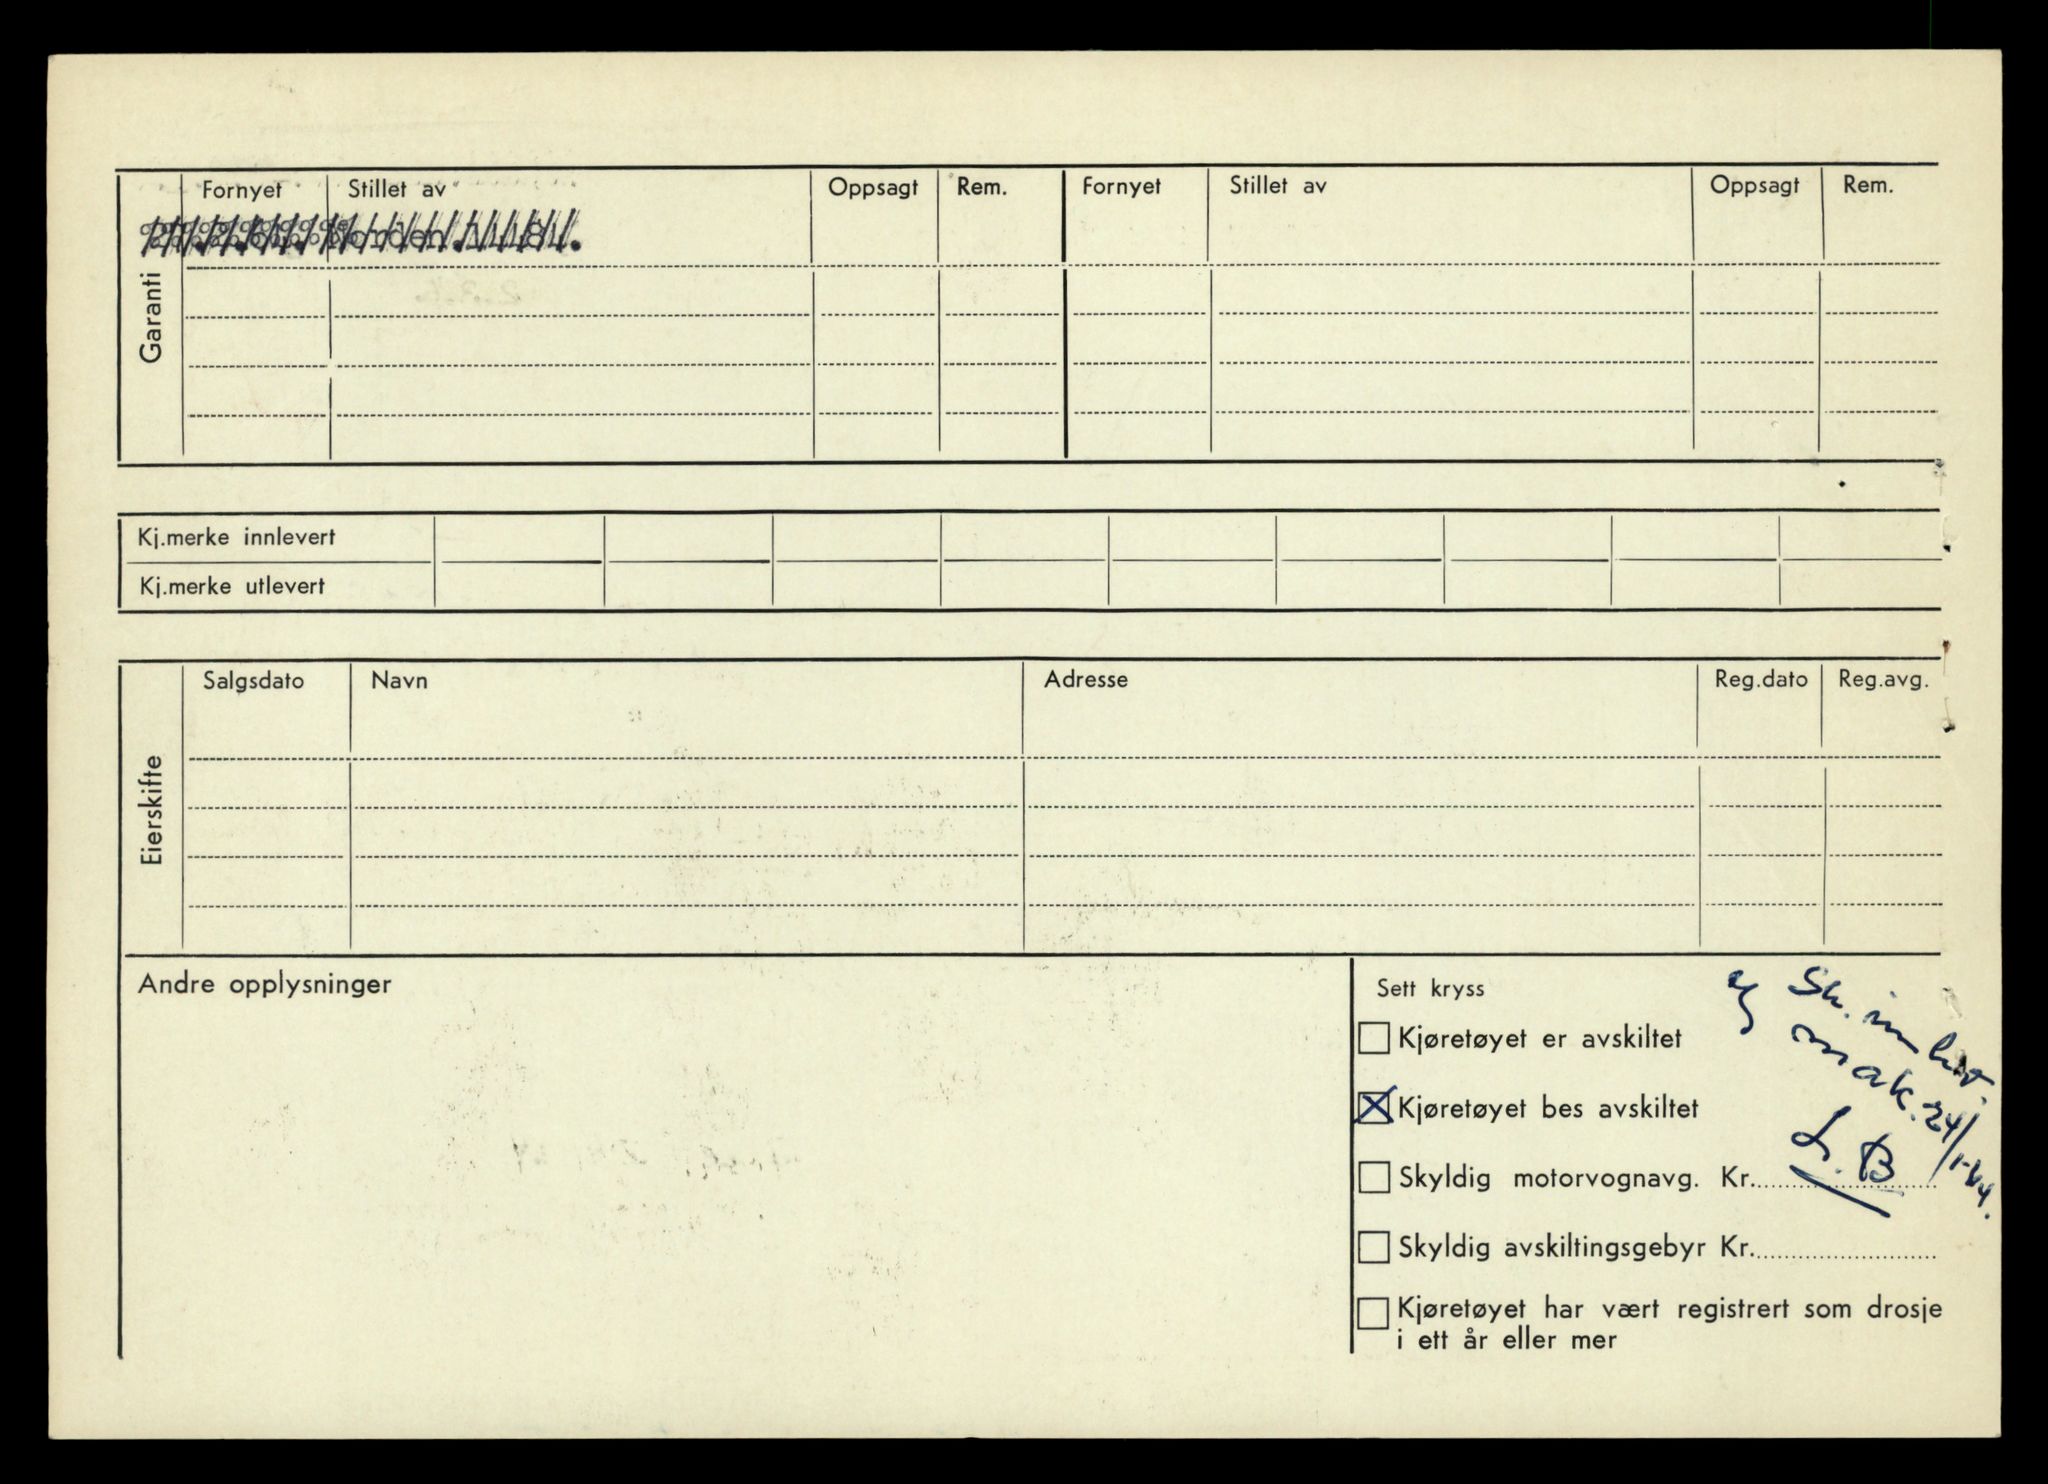 Garanti
Fornyet Stillet av Oppsagt Rem. Fornyet Stillet av Oppsagt Rem.
Norden
Kj.merke innlevert
Kj.merke utlevert
Eierskifte
Salgsdato Navn Adresse Reg.dato Reg.avg.
Andre opplysninger
Sett kryss
Sk. innlev.
mak. 24/1-64.
L.B
Kjøretøyet er avskiltet
Kjøretøyet bes avskiltet
Skyldig motorvognavg. Kr.
Skyldig avskiltingsgebyr Kr.
Kjøretøyet har vært registrert som drosje
i ett år eller mer